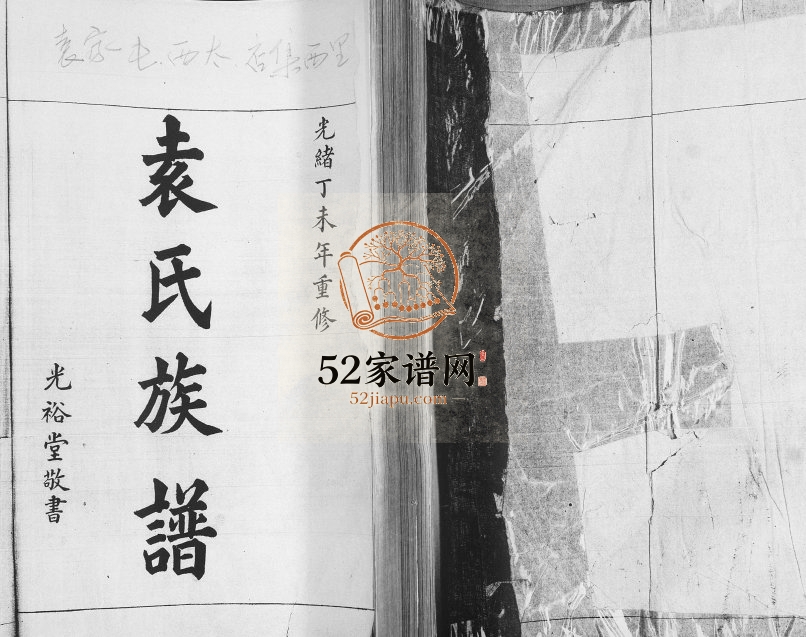 袁家屯西大店集西里
光緒丁未年重修
袁氏族譜
光裕堂敬書
52家谱网
52jiapu.com